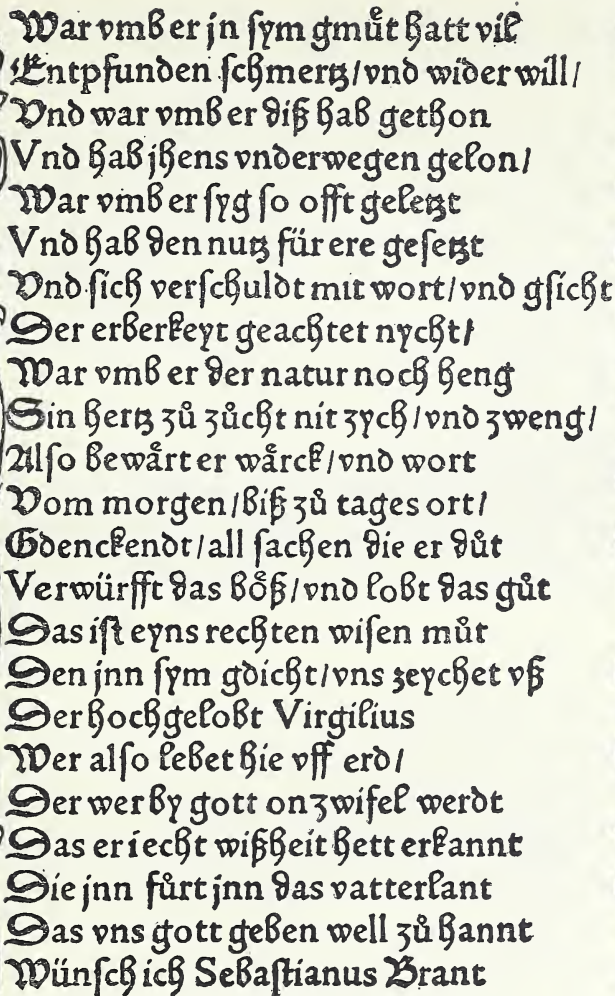 War vmb er jn ſym gmuͤt hatt vil
Entpfunden ſchmertz/vnd wider will/
Vnd war vmb er diß hab gethon
Vnd hab jhens vnderwegen gelon/
War vmb er ſyg ſo offt geletzt
Vnd hab den nutz für ere geſetzt
Vnd ſich verſchuldt mit wort/vnd gſicht
Der erberkeyt geachtet nycht/
War vmb er der natur noch heng
Sin hertz zuͦ zuͤcht nit zych/vnd zweng/
Alſo bewaͤrt er waͤrck/vnd wort
Vom morgen/biß zuͦ tages ort/
Gdenckendt/all ſachen die er duͦt
Verwürfft das boͤß/vnd lobt das guͦt
Das iſt eyns rechten wiſen muͦt
Den jnn ſym gdicht/vns zeychet vß
Der hochgelobt Virgilius
Wer alſo lebet hie vff erd/
Der wer by gott on zwifel werdt
Das er recht wißheit hett erkannt
Die jnn fuͤrt jnn das vatterlant
Das vns gott geben well zuͦ hannt
Wünſch ich Sebaſtianus Brant